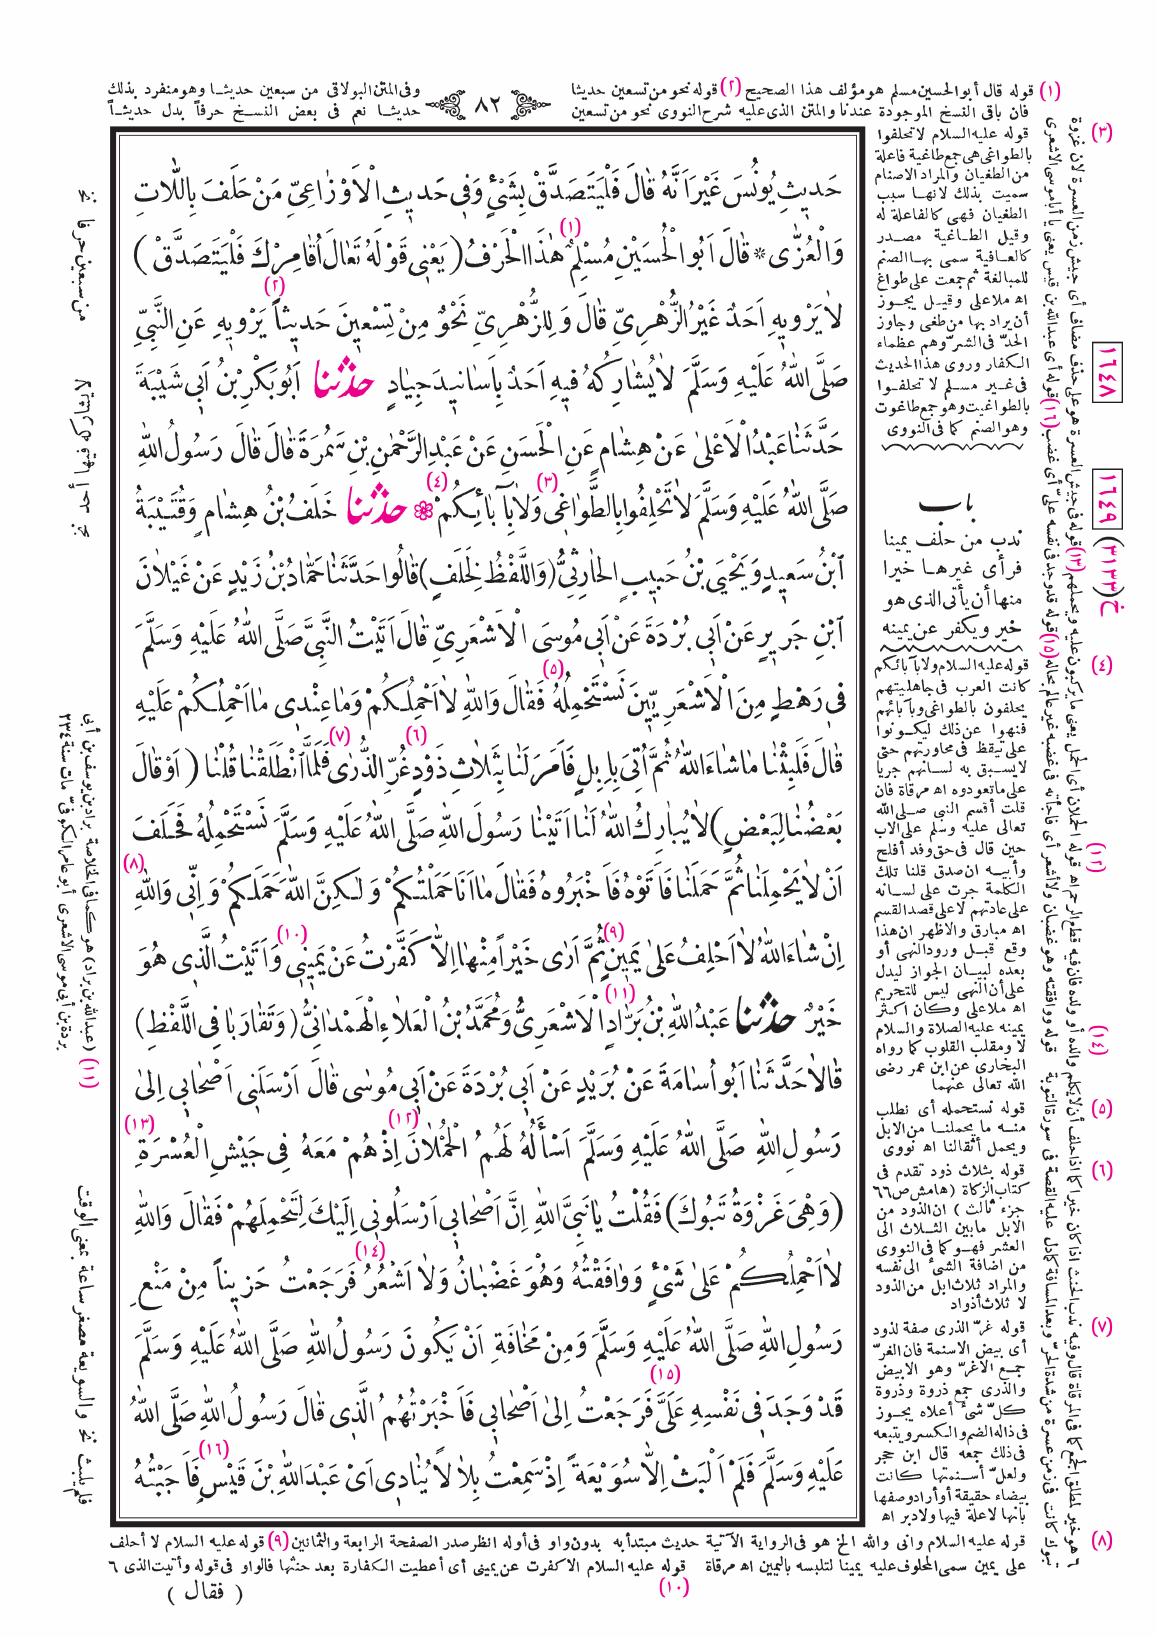 (١) قوله قال أبو الحسين مسلم هو مؤلف هذا الصحيح (٢) قوله نحو من تسعين حديثا
فان باقى النسخ الموجودة عندنا والمتن الذى عليه شرح النووى نحو من تسعين
وفى المتن البولاقى من سبعين حديثا وهو منفرد بذلك
حديثا نعم فى بعض النسخ حرفاً بدل حديثاً
٨٢
حَديثِ يُونُسَ غَيْرَ اَنَّهُ قَالَ فَلْيَتَصَدَّقْ بِشَىْءٍ وَفِى حَديثِ الْاَوْزَاعِىِّ مَنْ حَلَفَ بِاللَّاتِ
وَالْعُزَّى * قَالَ اَبُو الْحُسَيْنِ مُسْلِمٌ (١) هٰذَا الْحَرْفُ ( يَعْنِى قَوْلَهُ تَعَالَ اُقَامِرْكَ فَلْيَتَصَدَّقْ )
لَا يَرْوِيهِ اَحَدٌ غَيْرُ الزُّهْرِىِّ قَالَ وَلِلزُّهْرِىِّ نَحْوٌ مِنْ تِسْعِينَ حَديثاً (٢) يَرْوِيهِ عَنِ النَّبِىِّ
صَلَّى اللّٰهُ عَلَيْهِ وَسَلَّمَ لَا يُشَارِكُهُ فِيهِ اَحَدٌ بِاَسَانِيدَ جِيَادٍ حدّثنا اَبُو بَكْرِ بْنُ اَبِى شَيْبَةَ
حَدَّثَنَا عَبْدُ الْاَعْلىٰ عَنْ هِشَامٍ عَنِ الْحَسَنِ عَنْ عَبْدِ الرَّحْمٰنِ بْنِ سَمُرَةَ قَالَ قَالَ رَسُولُ اللّٰهِ
صَلَّى اللّٰهُ عَلَيْهِ وَسَلَّمَ لَا تَحْلِفُوا بِالطَّوَاغِى (٣) وَلَا بِآبَائِكُمْ (٤) حدّثنا خَلَفُ بْنُ هِشَامٍ وَقُتَيْبَةُ
ابْنُ سَعِيدٍ وَيَحْيَى بْنُ حَبِيبٍ الْحَارِثِىُّ (وَاللَّفْظُ لِخَلَفٍ) قَالُوا حَدَّثَنَا حَمَّادُ بْنُ زَيْدٍ عَنْ غَيْلَانَ
ابْنِ جَرِيرٍ عَنْ اَبِى بُرْدَةَ عَنْ اَبِى مُوسَى الْاَشْعَرِىِّ قَالَ اَتَيْتُ النَّبِىَّ صَلَّى اللّٰهُ عَلَيْهِ وَسَلَّمَ
فِى رَهْطٍ مِنَ الْاَشْعَرِيِّينَ نَسْتَحْمِلُهُ (٥) فَقَالَ وَاللّٰهِ لَا اَحْمِلُكُمْ وَمَا عِنْدِى مَا اَحْمِلُكُمْ عَلَيْهِ
قَالَ فَلَبِثْنَا مَا شَاءَ اللّٰهُ ثُمَّ اُتِىَ بِاِبِلٍ فَاَمَرَ لَنَا بِثَلَاثِ ذَوْدٍ (٦) غُرِّ الذُّرَى (٧) فَلَمَّا انْطَلَقْنَا قُلْنَا ( اَوْ قَالَ
بَعْضُنَا لِبَعْضٍ ) لَا يُبَارِكُ اللّٰهُ لَنَا اَتَيْنَا رَسُولَ اللّٰهِ صَلَّى اللّٰهُ عَلَيْهِ وَسَلَّمَ نَسْتَحْمِلُهُ فَحَلَفَ
اَنْ لَا يَحْمِلَنَا ثُمَّ حَمَلَنَا فَاَتَوْهُ فَاَخْبَرُوهُ فَقَالَ مَا اَنَا حَمَلْتُكُمْ وَلٰكِنَّ اللّٰهَ حَمَلَكُمْ وَاِنِّى وَاللّٰهِ (٨)
اِنْ شَاءَ اللّٰهُ لَا اَحْلِفُ عَلىٰ يَمِينٍ (٩) ثُمَّ اَرٰى خَيْراً مِنْهَا اِلَّا كَفَّرْتُ عَنْ يَمِينِى (١٠) وَاَتَيْتُ الَّذِى هُوَ
خَيْرٌ حدّثنا عَبْدُ اللّٰهِ بْنُ بَرَّادٍ (١١) الْاَشْعَرِىُّ وَمُحَمَّدُ بْنُ الْعَلَاءِ الْهَمْدَانِىُّ ( وَتَقَارَبَا فِى اللَّفْظِ )
قَالَا حَدَّثَنَا اَبُو اُسَامَةَ عَنْ بُرَيْدٍ عَنْ اَبِى بُرْدَةَ عَنْ اَبِى مُوسٰى قَالَ اَرْسَلَنِى اَصْحَابِى اِلىٰ
رَسُولِ اللّٰهِ صَلَّى اللّٰهُ عَلَيْهِ وَسَلَّمَ اَسْأَلُهُ لَهُمُ الْحُمْلَانَ (١٢) اِذْ هُمْ مَعَهُ فِى جَيْشِ الْعُسْرَةِ (١٣)
(وَهِىَ غَزْوَةُ تَبُوكَ) فَقُلْتُ يَا نَبِىَّ اللّٰهِ اِنَّ اَصْحَابِى اَرْسَلُونِى اِلَيْكَ لِتَحْمِلَهُمْ فَقَالَ وَاللّٰهِ
لَا اَحْمِلُكُمْ عَلىٰ شَىْءٍ وَوَافَقْتُهُ وَهُوَ غَضْبَانُ وَلَا اَشْعُرُ (١٤) فَرَجَعْتُ حَزِيناً مِنْ مَنْعِ
رَسُولِ اللّٰهِ صَلَّى اللّٰهُ عَلَيْهِ وَسَلَّمَ وَمِنْ مَخَافَةِ اَنْ يَكُونَ رَسُولُ اللّٰهِ صَلَّى اللّٰهُ عَلَيْهِ وَسَلَّمَ
قَدْ وَجَدَ فِى نَفْسِهِ عَلَىَّ (١٥) فَرَجَعْتُ اِلىٰ اَصْحَابِى فَاَخْبَرْتُهُمُ الَّذِى قَالَ رَسُولُ اللّٰهِ صَلَّى اللّٰهُ
عَلَيْهِ وَسَلَّمَ فَلَمْ اَلْبَثْ اِلَّا سُوَيْعَةً اِذْ سَمِعْتُ بِلَالاً يُنَادِى اَىْ عَبْدَ اللّٰهِ بْنَ قَيْسٍ (١٦) فَاَجَبْتُهُ
(٣) قوله عليه السلام لا تحلفوا
بالطواغى هى جمع طاغية فاعلة
من الطغيان والمراد الاصنام
سميت بذلك لانها سبب
الطغيان فهى كالفاعلة له
وقيل الطاغية مصدر
كالعافية سمى بها الصنم
للمبالغة ثم جمعت على طواغ
اه ملا على وقيل يجوز
أن يراد بها من طغى وجاوز
الحدّ فى الشرّ وهم عظماء
الكفار وروى هذا الحديث
فى غير مسلم لا تحلفوا
بالطواغيت وهو جمع طاغوت
وهو الصنم كما فى النووى
١٦٤٨
١٦٤٩ (٣١٣٣) خ
باب
ندب من حلف يمينا
فرأى غيرها خيرا
منها أن يأتى الذى هو
خير ويكفر عن يمينه
(٤) قوله عليه السلام ولا بآبائكم
كانت العرب فى جاهليتهم
يحلفون بالطواغى وبآبائهم
فنهوا عن ذلك ليكونوا
على تيقظ فى محاوراتهم حتى
لا يسبق به لسانهم جريا
على ما تعودوه اه مرقاة فان
قلت أقسم النبى صلى الله
تعالى عليه وسلم على الاب
حين قال فى حق وفد أفلح
وأبيه ان صدق قلنا تلك
الكلمة جرت على لسانه
على عادتهم لا على قصد القسم
اه مبارق والاظهر ان هذا
وقع قبل ورود النهى أو
بعده لبيان الجواز ليدل
على أن النهى ليس للتحريم
اه ملا على وكان اكثر
يمينه عليه الصلاة والسلام
لا ومقلب القلوب كما رواه
البخارى عن ابن عمر رضى
الله تعالى عنهما
(٥) قوله نستحمله أى نطلب
منه ما يحملنا من الابل
ويحمل أثقالنا اه نووى
(٦) قوله بثلاث ذود تقدم فى
كتاب الزكاة (هامش ص٦٦
جزء ثالث) ان الذود من
الابل مابين الثلاث الى
العشر فهو كما فى النووى
من اضافة الشئ الى نفسه
والمراد ثلاث ابل من الذود
لا ثلاث أذواد
(٧) قوله غرّ الذرى صفة لذود
أى بيض الاسنمة فان الغرّ
جمع الاغرّ وهو الابيض
والذرى جمع ذروة وذروة
كلّ شئ أعلاه يجوز
فى ذاله الضم والكسر ويتبعه
فى ذلك جمعه قال ابن حجر
ولعلّ أسنمتها كانت
بيضاء حقيقة أو أراد وصفها
بانها لاعلة فيها ولا دبر اه
(٨) قوله عليه السلام وانى والله الخ هو فى الرواية الآتية حديث مبتدأ به بدون واو فى أوله انظر صدر الصفحة الرابعة والثمانين (٩) قوله عليه السلام لا أحلف
على يمين سمى المحلوف عليه يمينا لتلبسه باليمين اه مرقاة (١٠) قوله عليه السلام الا كفرت عن يمينى أى أعطيت الكفارة بعد حنثها فالواو فى قوله وأتيت الذى ٦
( فقال )
(١١) (عبدالله بن براد) هو كما فى الخلاصة براد بن يوسف بن أبى
بردة بن أبى موسى الاشعرى أبو عامر الكوفى مات سنة ٢٣٤
من سبعين حرفا نخ
فلم يلبث نخ والسويعة مصغر ساعة بمعنى الوقت